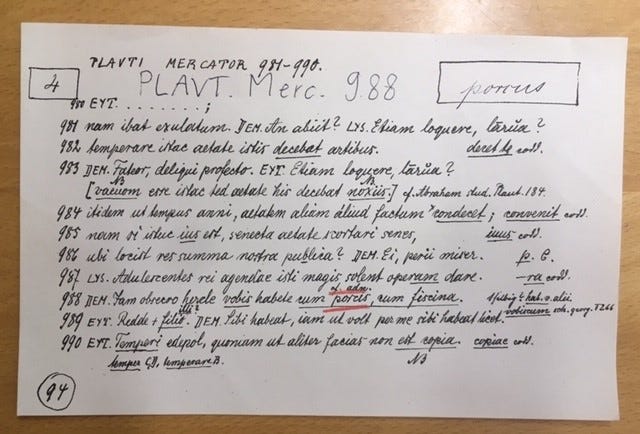 PLAVTI MERCATOR 981-990.
4 PLAVT. Merc. 988 porcus
980 EYT. . . . . . . . ;
981 nam ibat exulatum. DEM. An abiit? LYS. Etiam loquere, lārŭa?
982 temperare istac aetate istis decebat artibus. decet codd.
983 DEM. Fateor, deliqui profecto. EYT. Etiam loquere, lārŭa?
NB NB
[vacuom esse istac ted aetate his decebat noxiis.] cf. Abraham stud. Plaut. 184.
984 itidem ut tempus anni, aetatem aliam aliud factum condecet; convenit codd.
985 nam si istuc ius est, senecta aetate scortari senes, iuus codd.
986 ubi locist res summa nostra publica? DEM. Ei, perii miser. p. C.
987 LYS. Adulescentes rei agendae isti magis solent operam dare. -ra codd.
988 DEM. Iam obsecro hercle vobis habete cum porcis, cum fiscina.
vobiscum
989 EYT. Redde filio. DEM. Sibi habeat, iam ut volt per me sibi habeat licet.
990 EYT. Temperi edepol, quoniam ut aliter facias non est copia. copiae codd.
temper CD, temperare B. NB
94